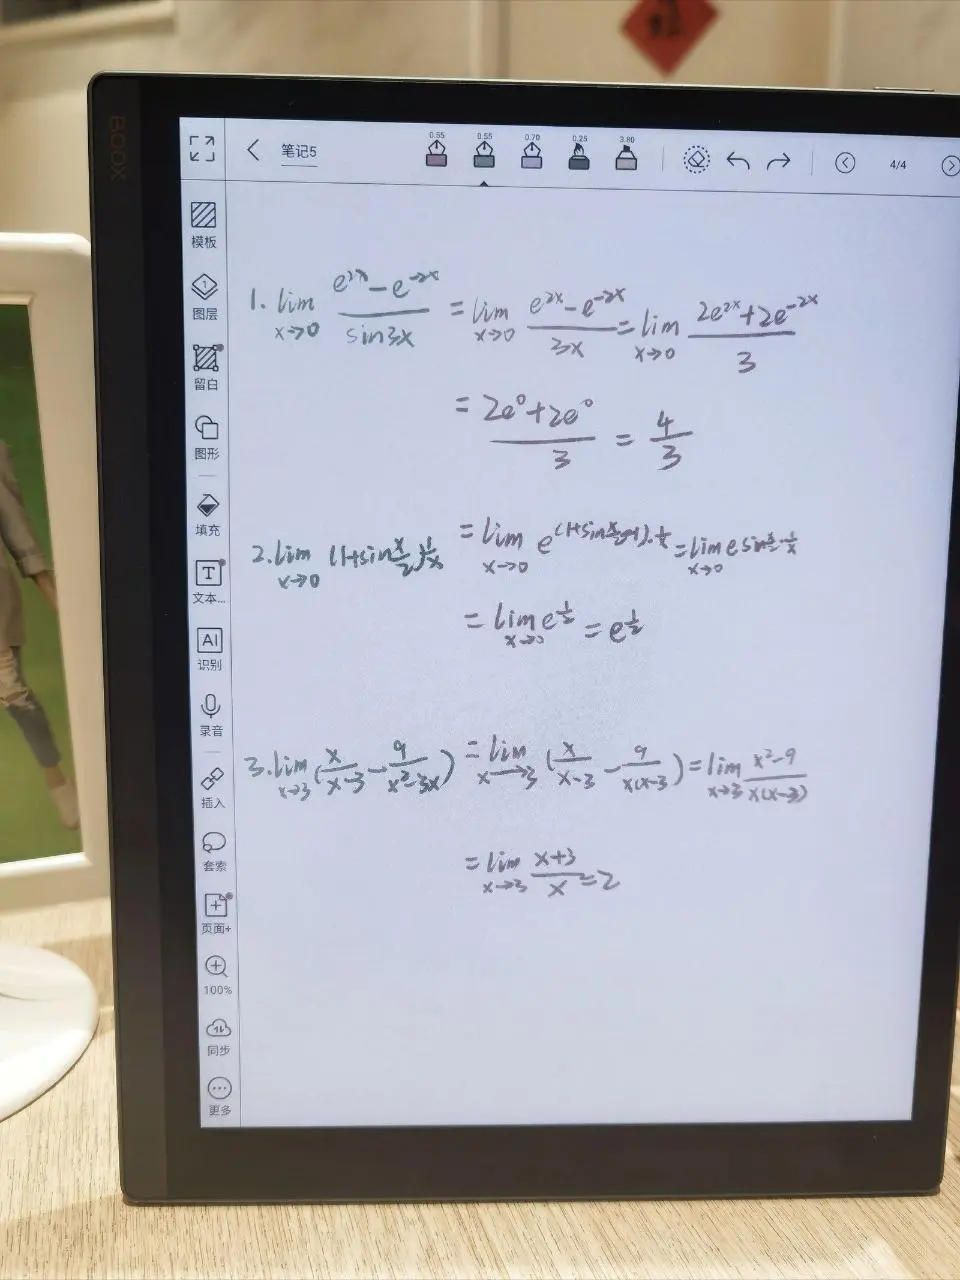 BOOX
笔记5
0.55 0.55 0.70 0.25 3.80
4/4
模板
图层
留白
图形
填充
文本...
AI
识别
录音
插入
套索
页面+
100%
同步
更多
1. lim x→0 (e^2x − e^−2x)/(sin3x) = lim x→0 (e^2x − e^−2x)/(3x) = lim x→0 (2e^2x + 2e^−2x)/3
= (2e^0 + 2e^0)/3 = 4/3
2. lim x→0 (1+sin x/2)^1/x = lim x→0 e^(1+sin x/2 −1)·1/x = lim x→0 e^sin x/2 · 1/x
= lim x→0 e^1/2 = e^1/2
3. lim x→3 (x/(x−3) − 9/(x²−3x)) = lim x→3 (x/(x−3) − 9/(x(x−3))) = lim x→3 (x²−9)/(x(x−3))
= lim x→3 (x+3)/x = 2